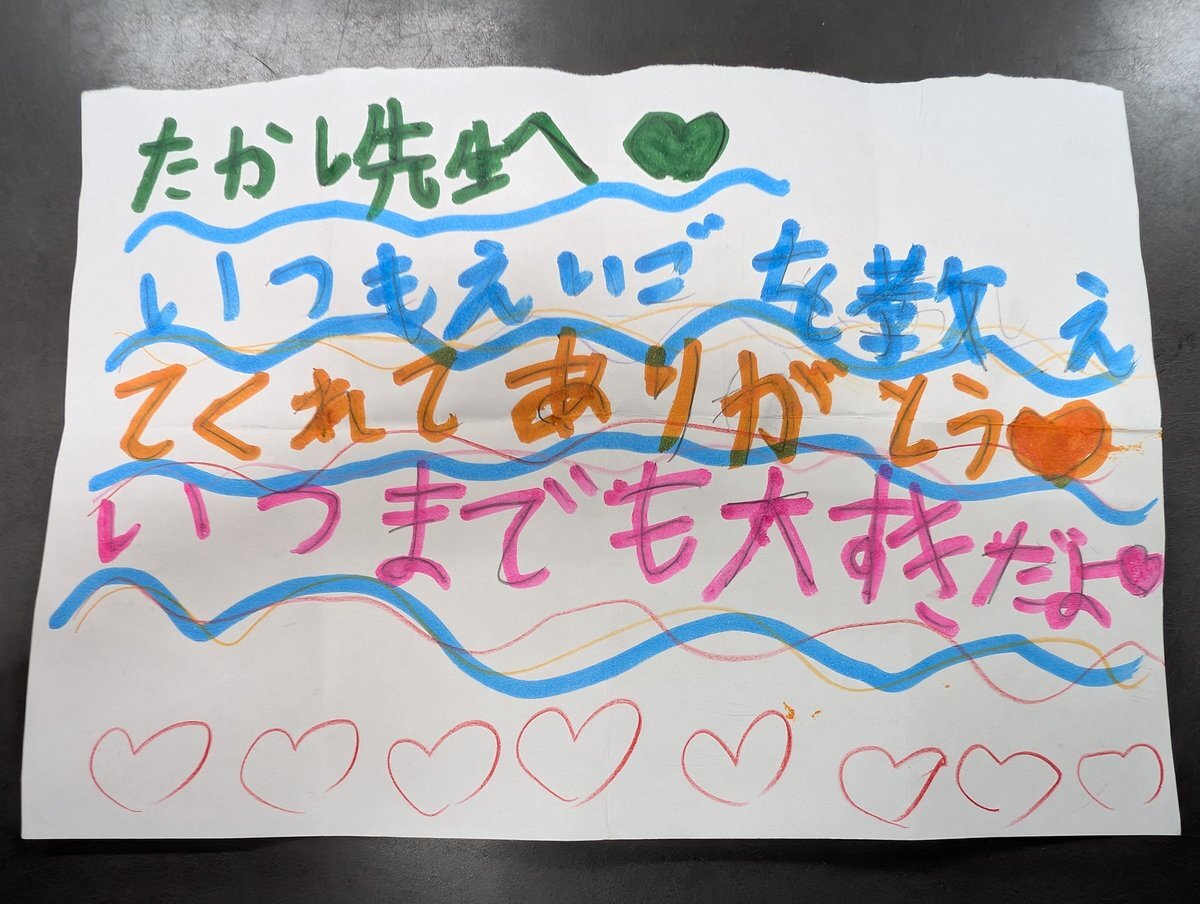 たかし先生へ
いつもえいごを教え
てくれてありがとう
いつまでも大すきだよ